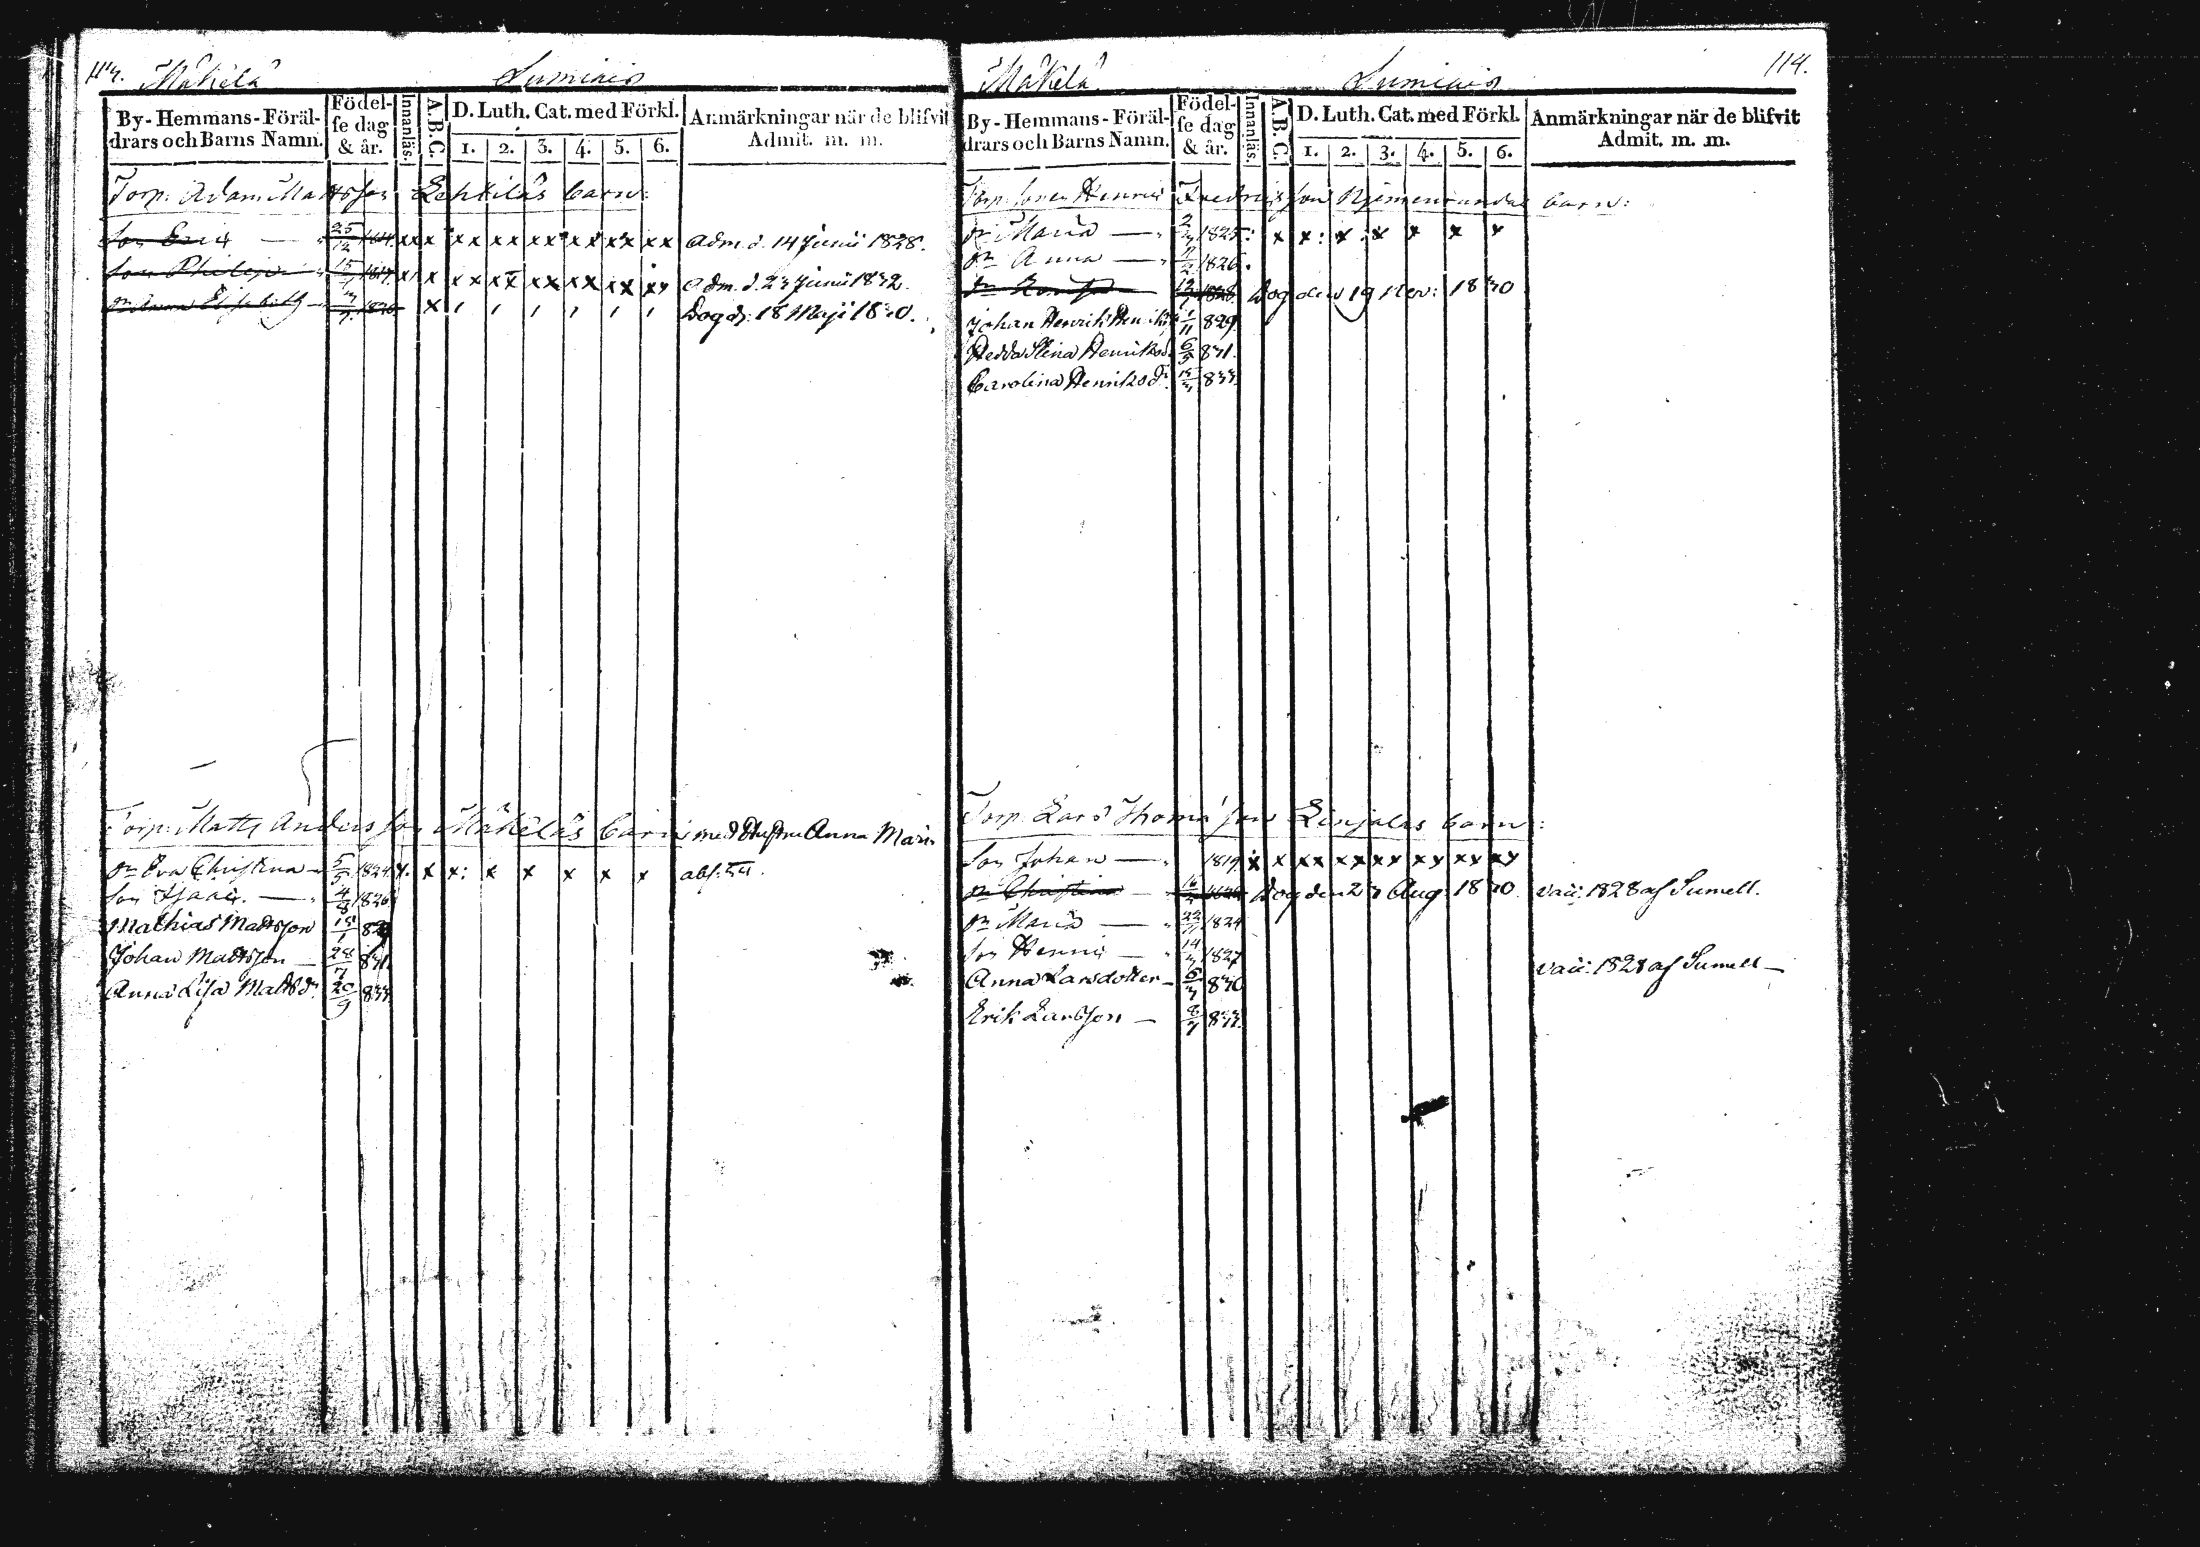 114. Mäkelä Lumiais
By-Hemmans-Föräl-
drars och Barns Namn.
Födel-
se dag
& år.
Innanläs.
A.B.C.
D. Luth. Cat. med Förkl.
1. 2. 3. 4. 5. 6.
Anmärkningar när de blifvit
Admit. m. m.
Torp. Adam Mattsson Lehtiläs barn:
Son Eric — 25/12 1814 xx x xx xx xx xx xx xx Adm. d. 14 Junii 1828.
Son Philip x x xx xx xx xx xx xx Adm. d. 23 Junii 1832.
Elisabeth x Dog d. 18 Maji 1830.
Torp. Matts Andersson Mäkeläs barn med Hustrun Anna Maria
Dr Eva Christina — 5/5 1824 x. x x: x x x x x
Son Isaac. — 4/8 1826
Mathias Mattsson 18/1
Johan Mattsson — 28/7 831
Anna Lisa Mattsdr 20/9 833
Mäkelä Lumiais 114.
By-Hemmans-Föräl-
drars och Barns Namn.
Födel-
se dag
& år.
Innanläs.
A.B.C.
D. Luth. Cat. med Förkl.
1. 2. 3. 4. 5. 6.
Anmärkningar när de blifvit
Admit. m. m.
Torp. Henric Fredricsson barn:
Dr Maria — 1825 x x: x x x x x
Dr Anna — 1826.
1828 Dog den 19 Nov: 1830
Johan Henrik 1/11 829
Hedda Stina Henriksd. 6/5 831.
Carolina Henriksdr 833.
Torp. Lars Thomasson barn:
Son Johan — 1819 x x xx xx xx xx xx xx
Dr Christina — Dog den 23 Aug 1830. Vacc: 1828 af Sumell.
Dr Maria — 1824
Son Henric — 1827 Vacc: 1828 af Sumell —
Anna Larsdotter — 5/3 830
Erik Larsson — 8/7 833.